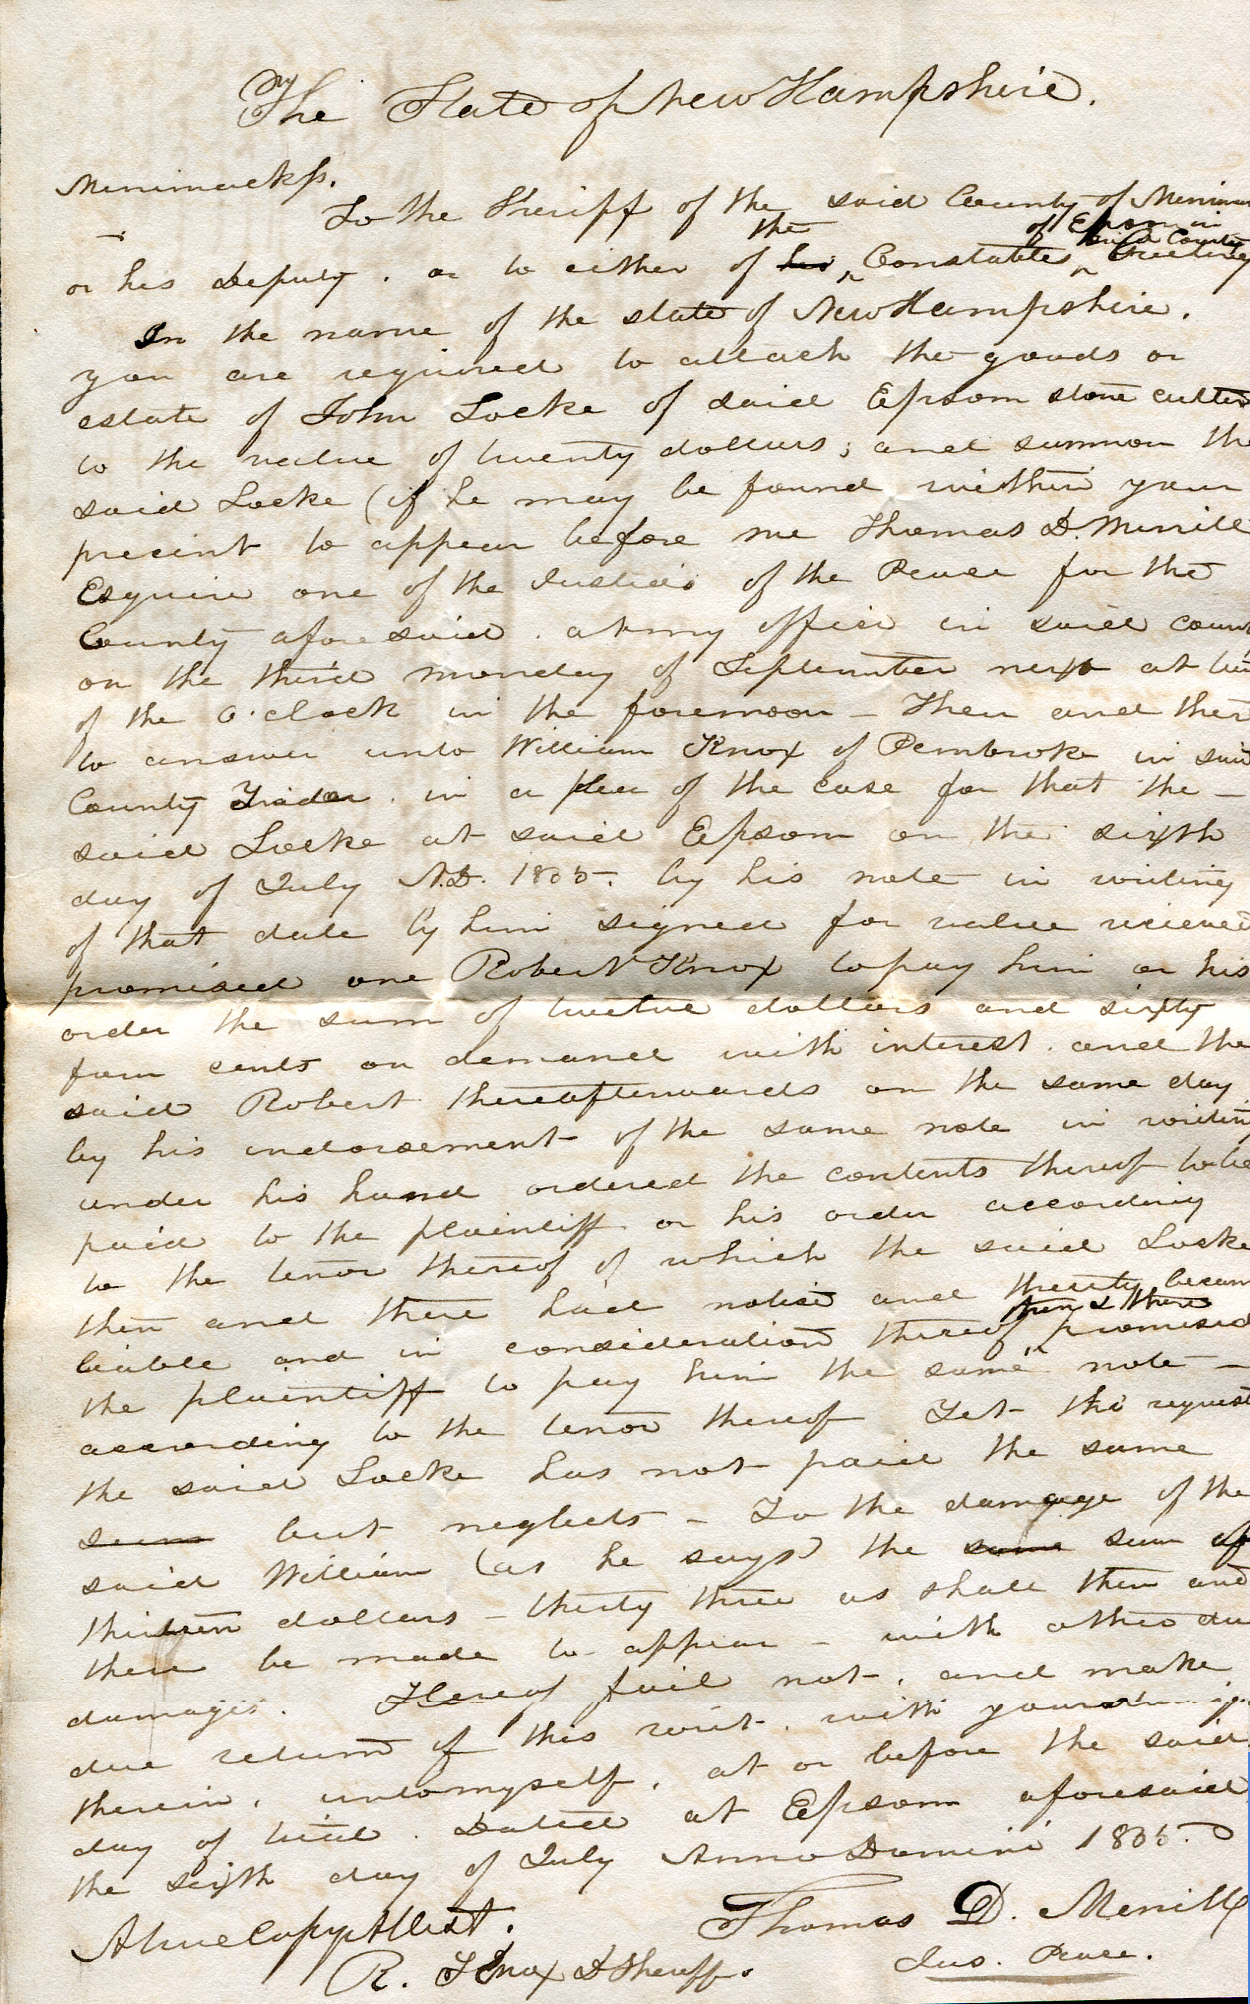 The State of New Hampshire.
Merrimack ss.
To the Sheriff of the said County of Merrimac
or his Deputy. or to either of his the Constables of Epsom in said County Greeting
In the name of the state of New Hampshire.
you are required to attach the goods or
estate of John Locke of said Epsom stone cutter
to the value of twenty dollars; and summon the
said Locke (if he may be found within your
precint to appear before me Thomas D. Merrill
Esquire one of the Justices of the Peace for the
County aforesaid. at my office in said coun
on the third monday of September next at
of the o'clock in the forenoon - Then and ther
to answer unto William Knox of Pembroke in said
County Trader. in a plea of the case for that the -
said Locke at said Epsom on the sixth
day of July A.D. 1835. by his note in writing
of that date by him signed for value recieved
promised one Robert Knox to pay him or his
order the sum of twelve dollars and sixty
four cents on demand with interest. and the
said Robert thereafterwards on the same day
by his indorsement of the same note in writing
under his hand ordered the contents thereof to be
paid to the plaintiff or his order according
to the tenor thereof of which the said Locke
then and there had notice and thereby becam
liable and in consideration thereof then & there promised
the plaintiff to pay him the same note -
according to the tenor thereof Yet tho request
the said Locke has not paid the same
sum but neglects - To the damage of the
said William (as he says) the same sum of
thirteen dollars - thirty three as shall then and
there be made to appear - with other due
damages. Hereof fail not, and make
due return of this writ. with your
therein, unto myself, at or before the said
day of trial. Dated at Epsom aforesaid
the sixth day of July Anno Domini 1835.
A true Copy Attest. Thomas D. Merrill
R. Knox D Sheriff. Jus. Peace.